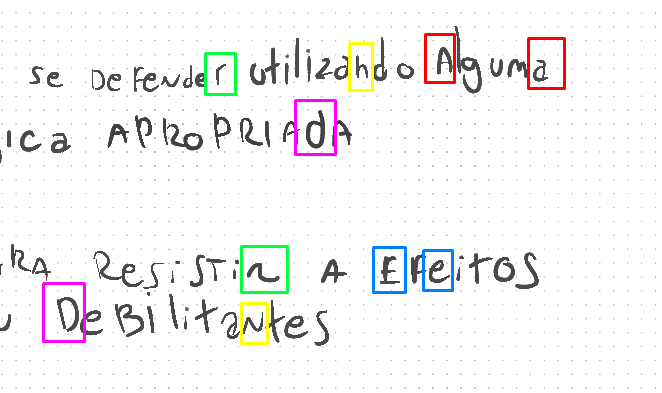 se DeFeNder utilizando Alguma
gica APROPRIAdA
RA ResistiR A EFeitos
DeBilitaNtes